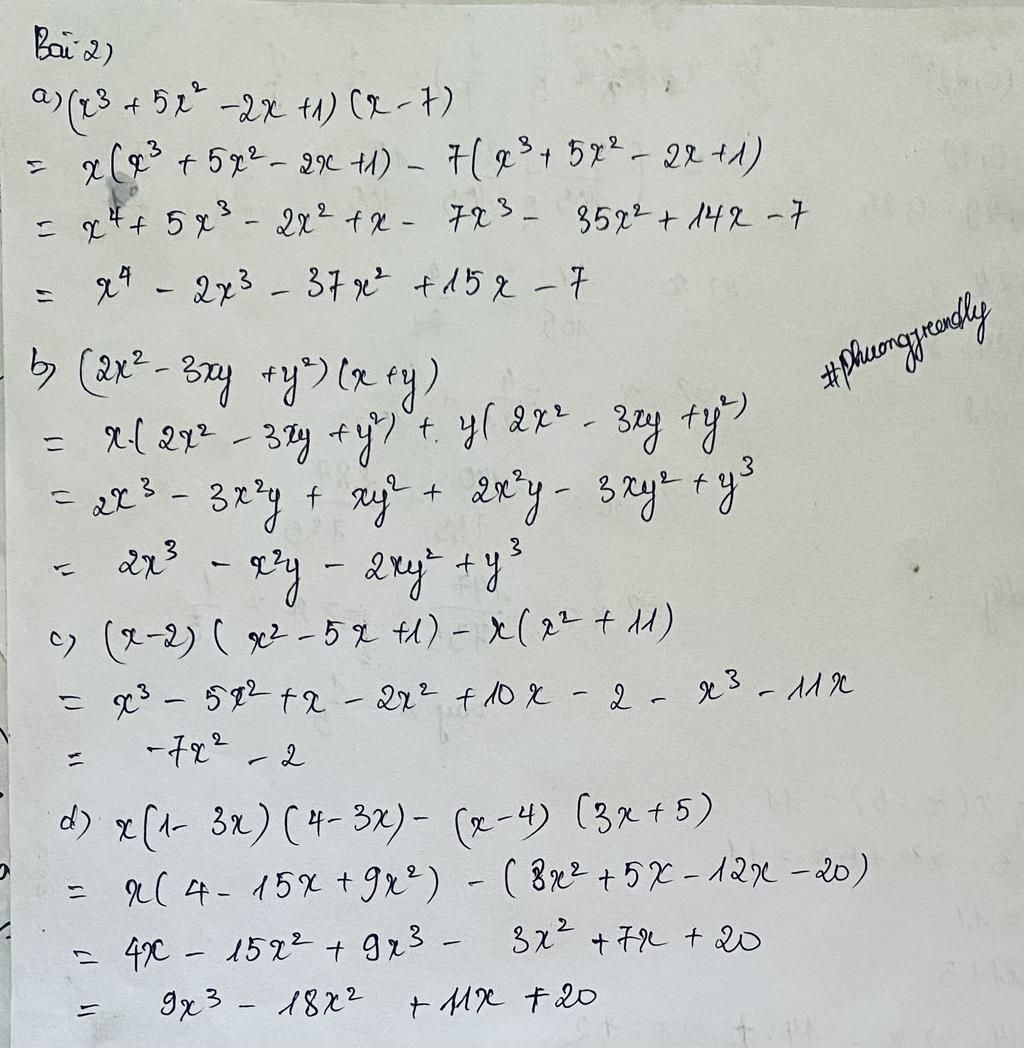 Bài 2)
a) (x³ + 5x² - 2x + 1) (x - 7)
= x(x³ + 5x² - 2x + 1) - 7(x³ + 5x² - 2x + 1)
= x⁴ + 5x³ - 2x² + x - 7x³ - 35x² + 14x - 7
= x⁴ - 2x³ - 37x² + 15x - 7
#phuonggreendly
b) (2x² - 3xy + y²) (x + y)
= x.(2x² - 3xy + y²) + y(2x² - 3xy + y²)
= 2x³ - 3x²y + xy² + 2x²y - 3xy² + y³
= 2x³ - x²y - 2xy² + y³
c) (x - 2) (x² - 5x + 1) - x(x² + 11)
= x³ - 5x² + x - 2x² + 10x - 2 - x³ - 11x
= -7x² - 2
d) x(1 - 3x) (4 - 3x) - (x - 4) (3x + 5)
= x(4 - 15x + 9x²) - (3x² + 5x - 12x - 20)
= 4x - 15x² + 9x³ - 3x² + 7x + 20
= 9x³ - 18x² + 11x + 20